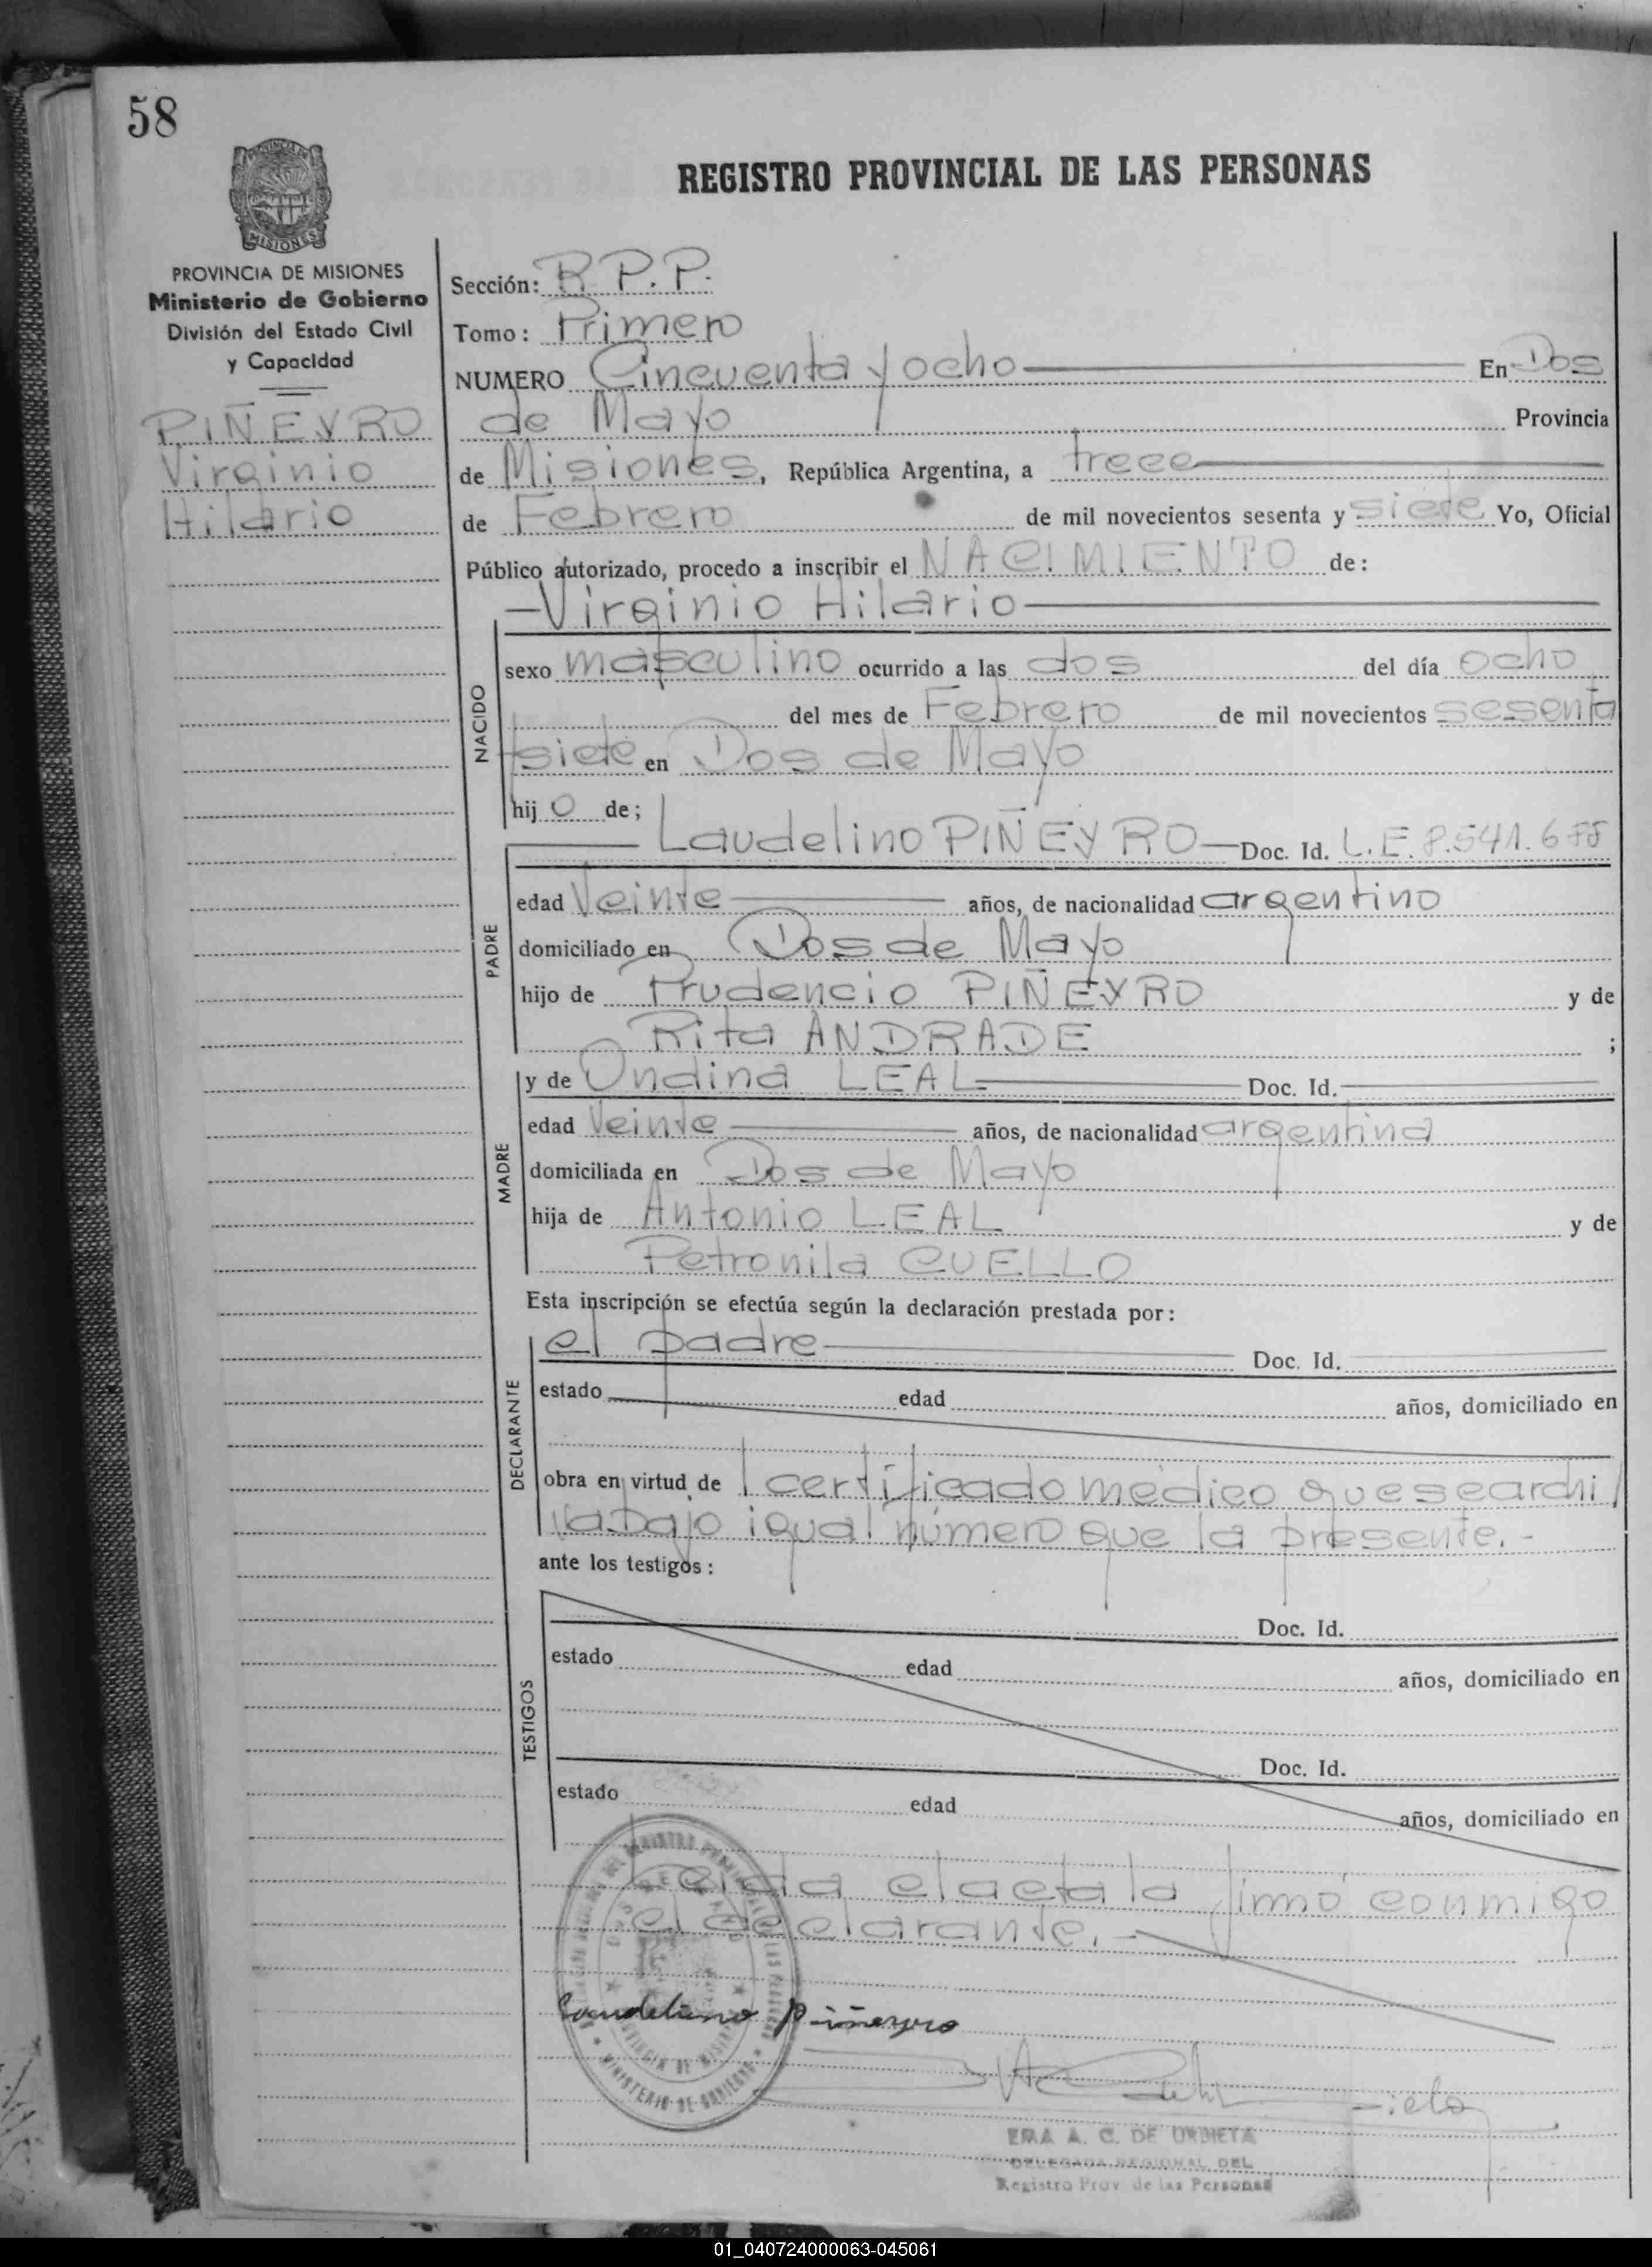 58
REGISTRO PROVINCIAL DE LAS PERSONAS
MISIONES
PROVINCIA DE MISIONES
Ministerio de Gobierno
División del Estado Civil
y Capacidad
PIÑEYRO
Virginio
Hilario
Sección: R.P.P.
Tomo: Primero
NUMERO Cincuenta y ocho En Dos
de Mayo Provincia
de Misiones, República Argentina, a trece
de Febrero de mil novecientos sesenta y siete Yo, Oficial
Público autorizado, procedo a inscribir el NACIMIENTO de:
Virginio Hilario
NACIDO
sexo masculino ocurrido a las dos del día ocho
del mes de Febrero de mil novecientos sesenta
siete en Dos de Mayo
hijo de;
PADRE
Laudelino PIÑEYRO Doc. Id. L.E. 8.541.6
edad Veinte años, de nacionalidad argentino
domiciliado en Dos de Mayo
hijo de Prudencio PIÑEYRO y de
Rita ANDRADE ;
MADRE
y de Ondina LEAL Doc. Id.
edad Veinte años, de nacionalidad argentina
domiciliada en Dos de Mayo
hija de Antonio LEAL y de
Petronila CUELLO
Esta inscripción se efectúa según la declaración prestada por:
DECLARANTE
el padre Doc. Id.
estado edad años, domiciliado en
obra en virtud de l certificado médico que se archi/
va bajo igual número que la presente.-
ante los testigos:
TESTIGOS
Doc. Id.
estado edad años, domiciliado en
Doc. Id.
estado edad años, domiciliado en
Leida el acta la firmó conmigo
el declarante.-
Laudelino Piñeyro
MINISTERIO DE GOBIERNO
ERA A. C. DE URBIETA
DELEGADA REGIONAL DEL
Registro Prov. de las Personas
01_040724000063-045061